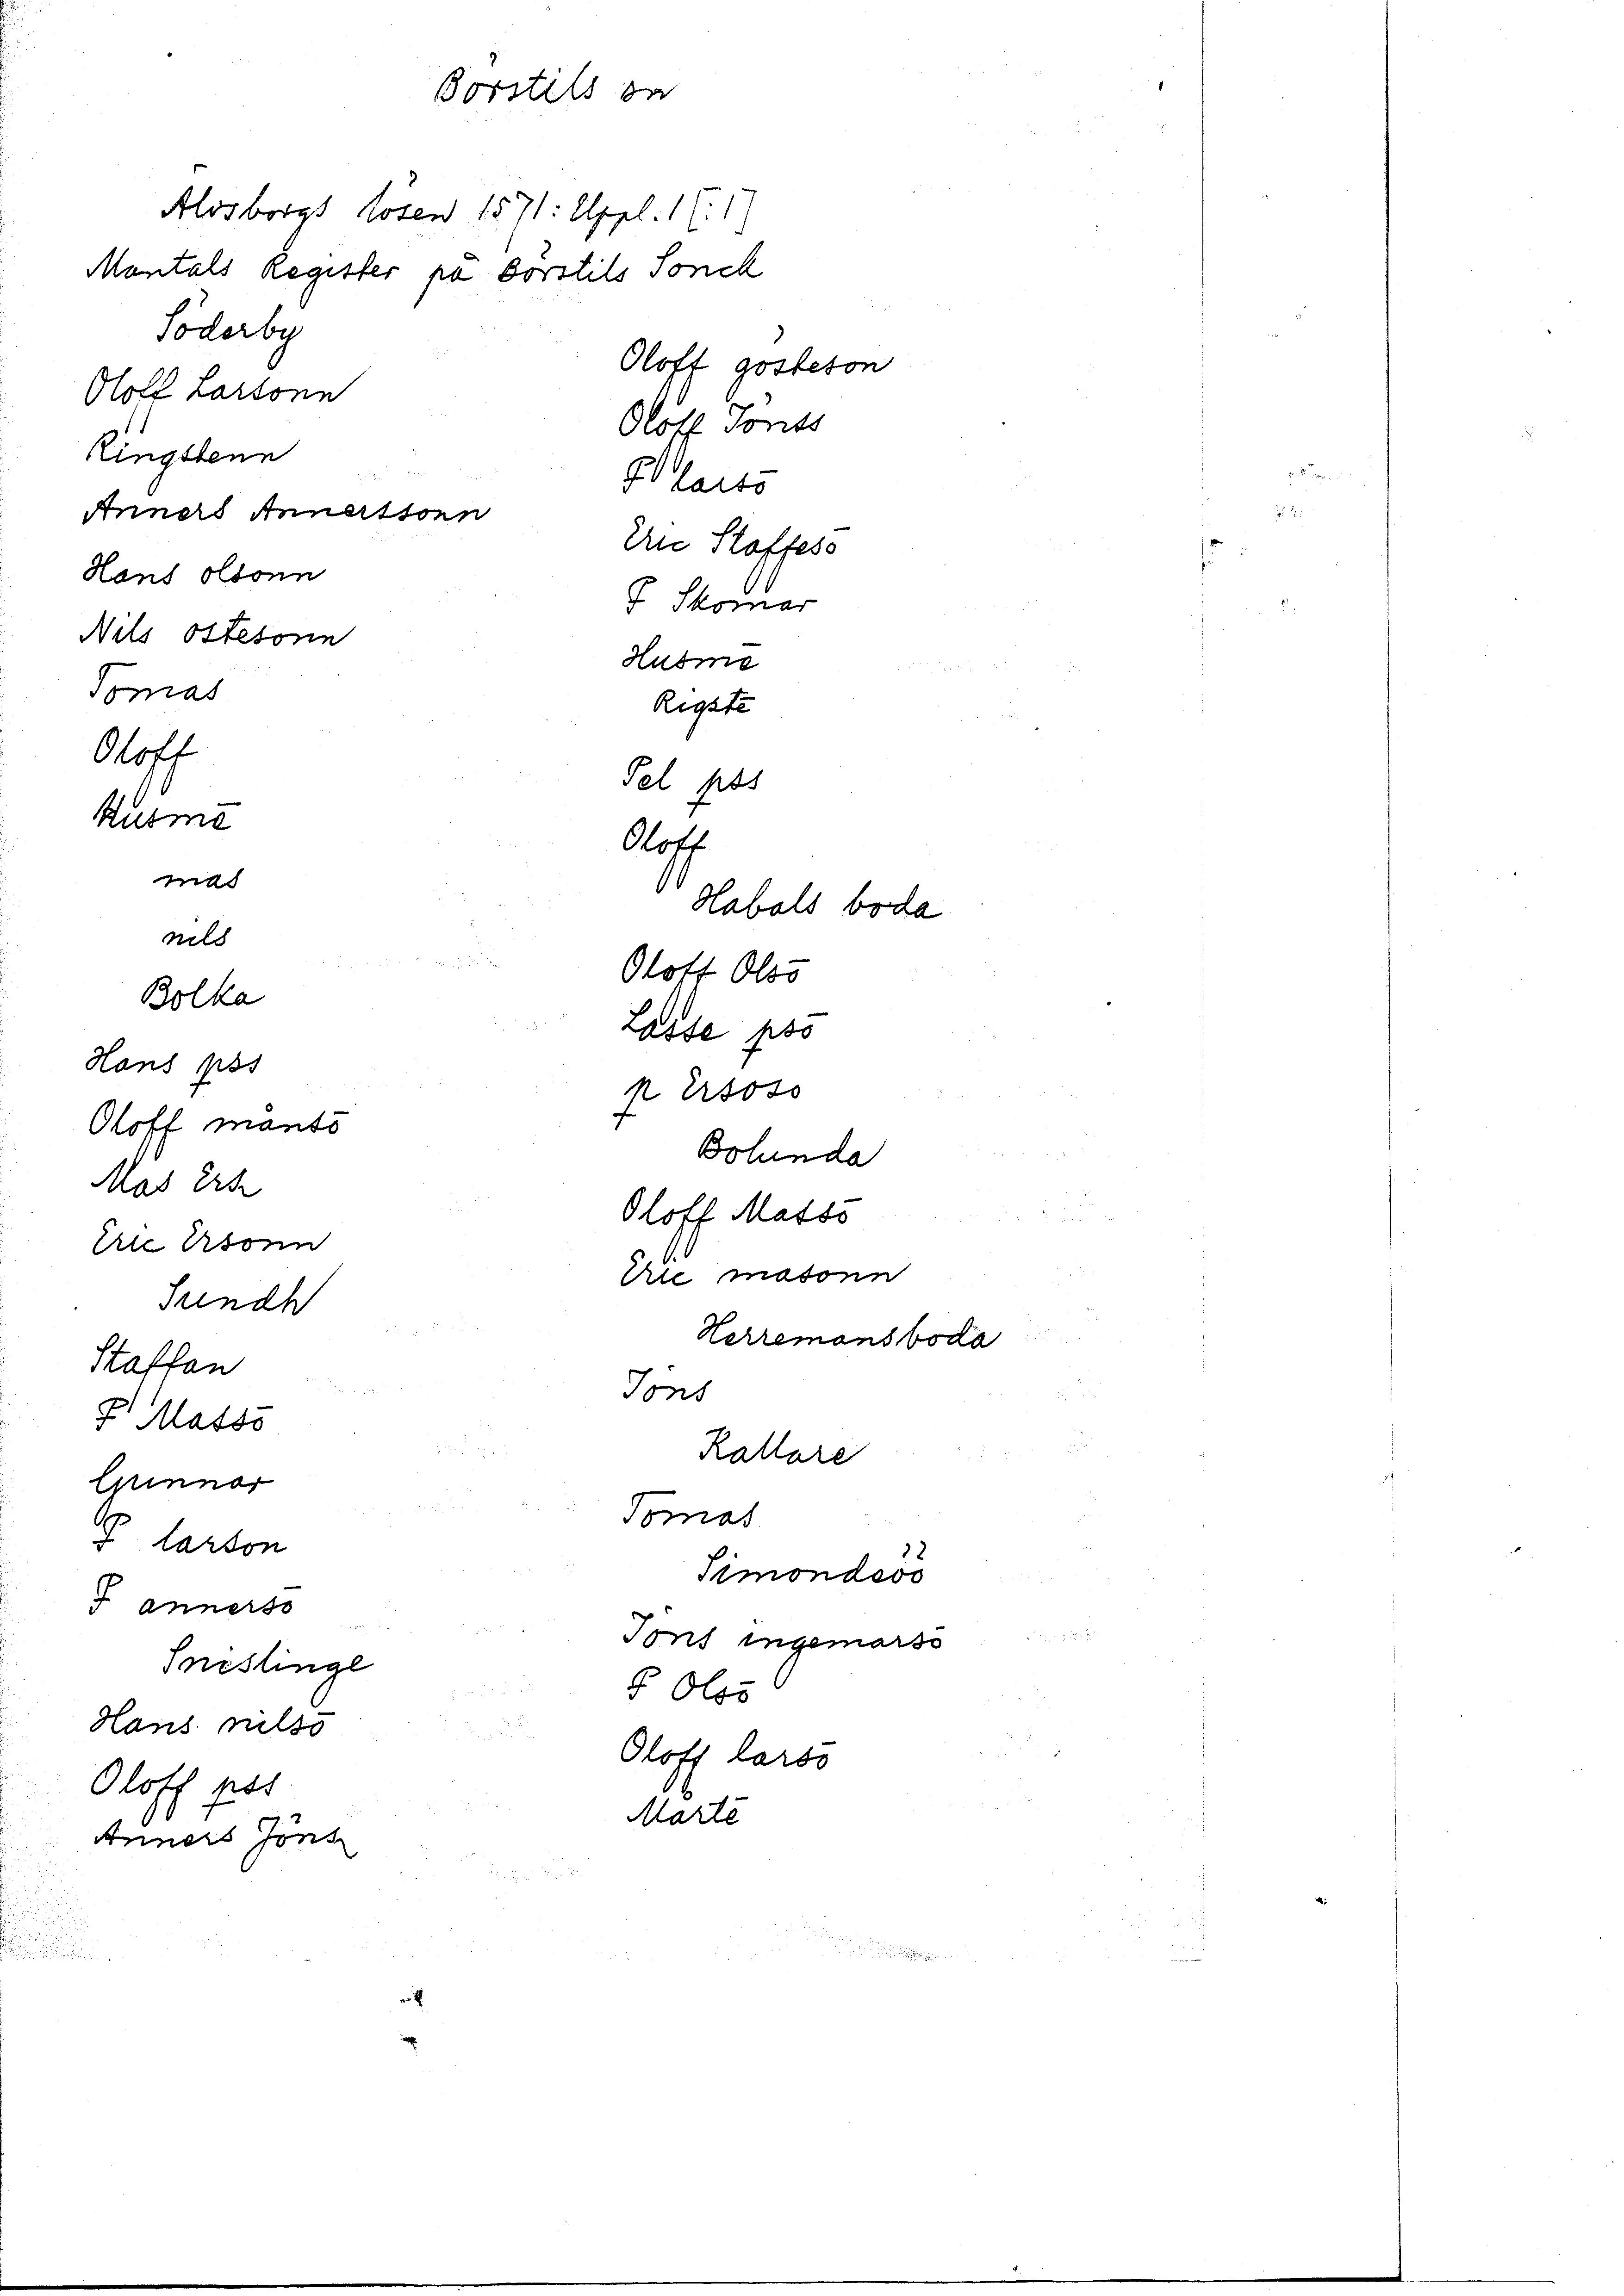 Börstils sn
Älvsborgs lösen 1571: Uppl. 1 (:1)
Mantals Register på Börstils Sonck
Söderby
Oloff Larsonn
Ringstenn
Anners Annerssonn
Hans olsonn
Nils ostesonn
Tomas
Oloff
Husmē
mas
nils
Bolka
Hans pss
Oloff månsō
Mas Ers
Eric Ersonn
Sundh
Staffan
P Matsō
Gunnar
P larson
P annersō
Snislinge
Hans nilsō
Oloff pss
Anners Jöns
Oloff gösteson
Oloff Jönss
P larsō
Eric Staffesō
P Skomar
Husmē
Rigstē
Pel pss
Oloff
Habals boda
Oloff Olsō
Lasse psō
p Ersoso
Bolunda
Oloff Matsō
Eric masonn
Herremansboda
Jöns
Kallare
Tomas
Simondsöö
Jöns ingemarsō
P Olsō
Oloff larsō
Mårtē